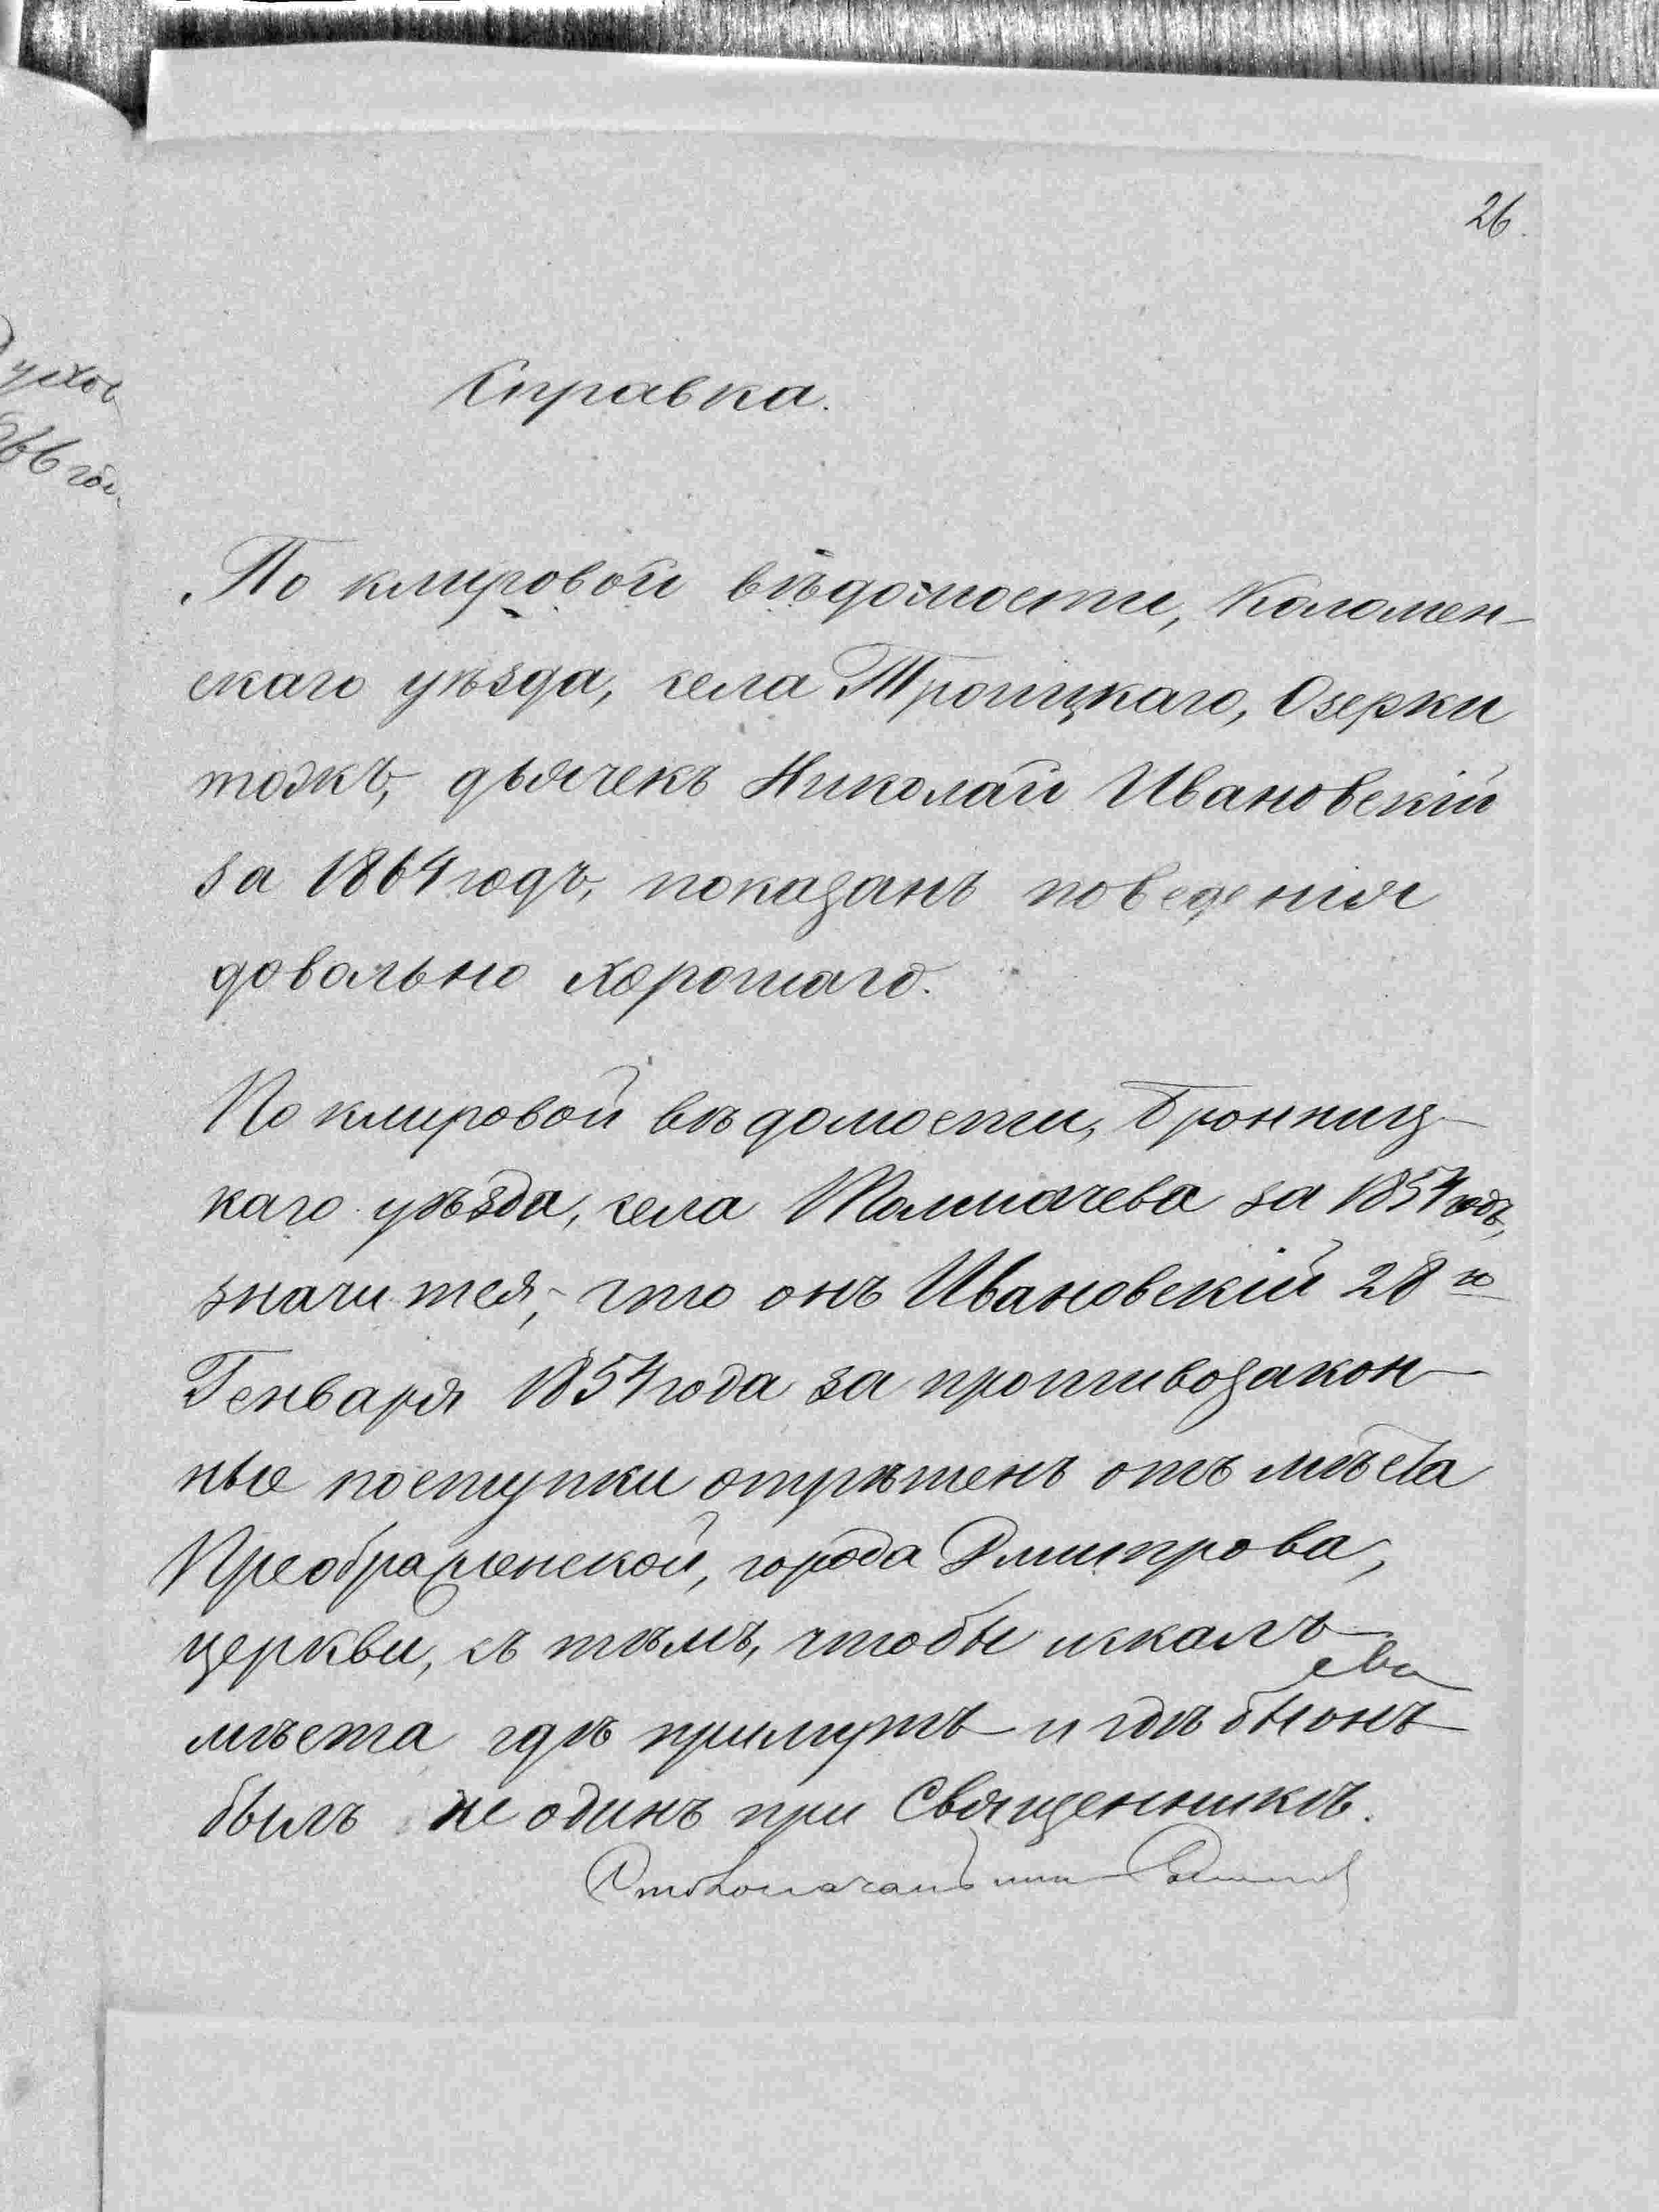 26.
Справка.
По клировой вѣдомости, Коломен-
скаго уѣзда, села Троицкаго, Озерки
тожъ, дьячекъ Николай Ивановскій
за 1864 годъ, показанъ поведенія
довольно хорошаго.
По клировой вѣдомости, Бронниц-
каго уѣзда, села Толмачева за 1854 годъ,
значится, что онъ Ивановскій 28 го
Генваря 1854 года за противозакон-
ные поступки отрѣшенъ отъ мѣста
Преображенской, города Дмитрова,
церкви, съ тѣмъ, чтобы искалъ
мѣста гдѣ примутъ и гдѣ бы онъ
былъ не одинъ при Священникѣ.
Столоначальникъ